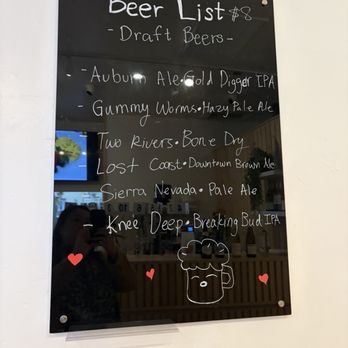 Beer List $8
- Draft Beers -
- Auburn Ale • Gold Digger IPA
- Gummy Worms • Hazy Pale Ale
- Two Rivers • Bone Dry
- Lost Coast • Downtown Brown Ale
Sierra Nevada • Pale Ale
- Knee Deep • Breaking Bud IPA